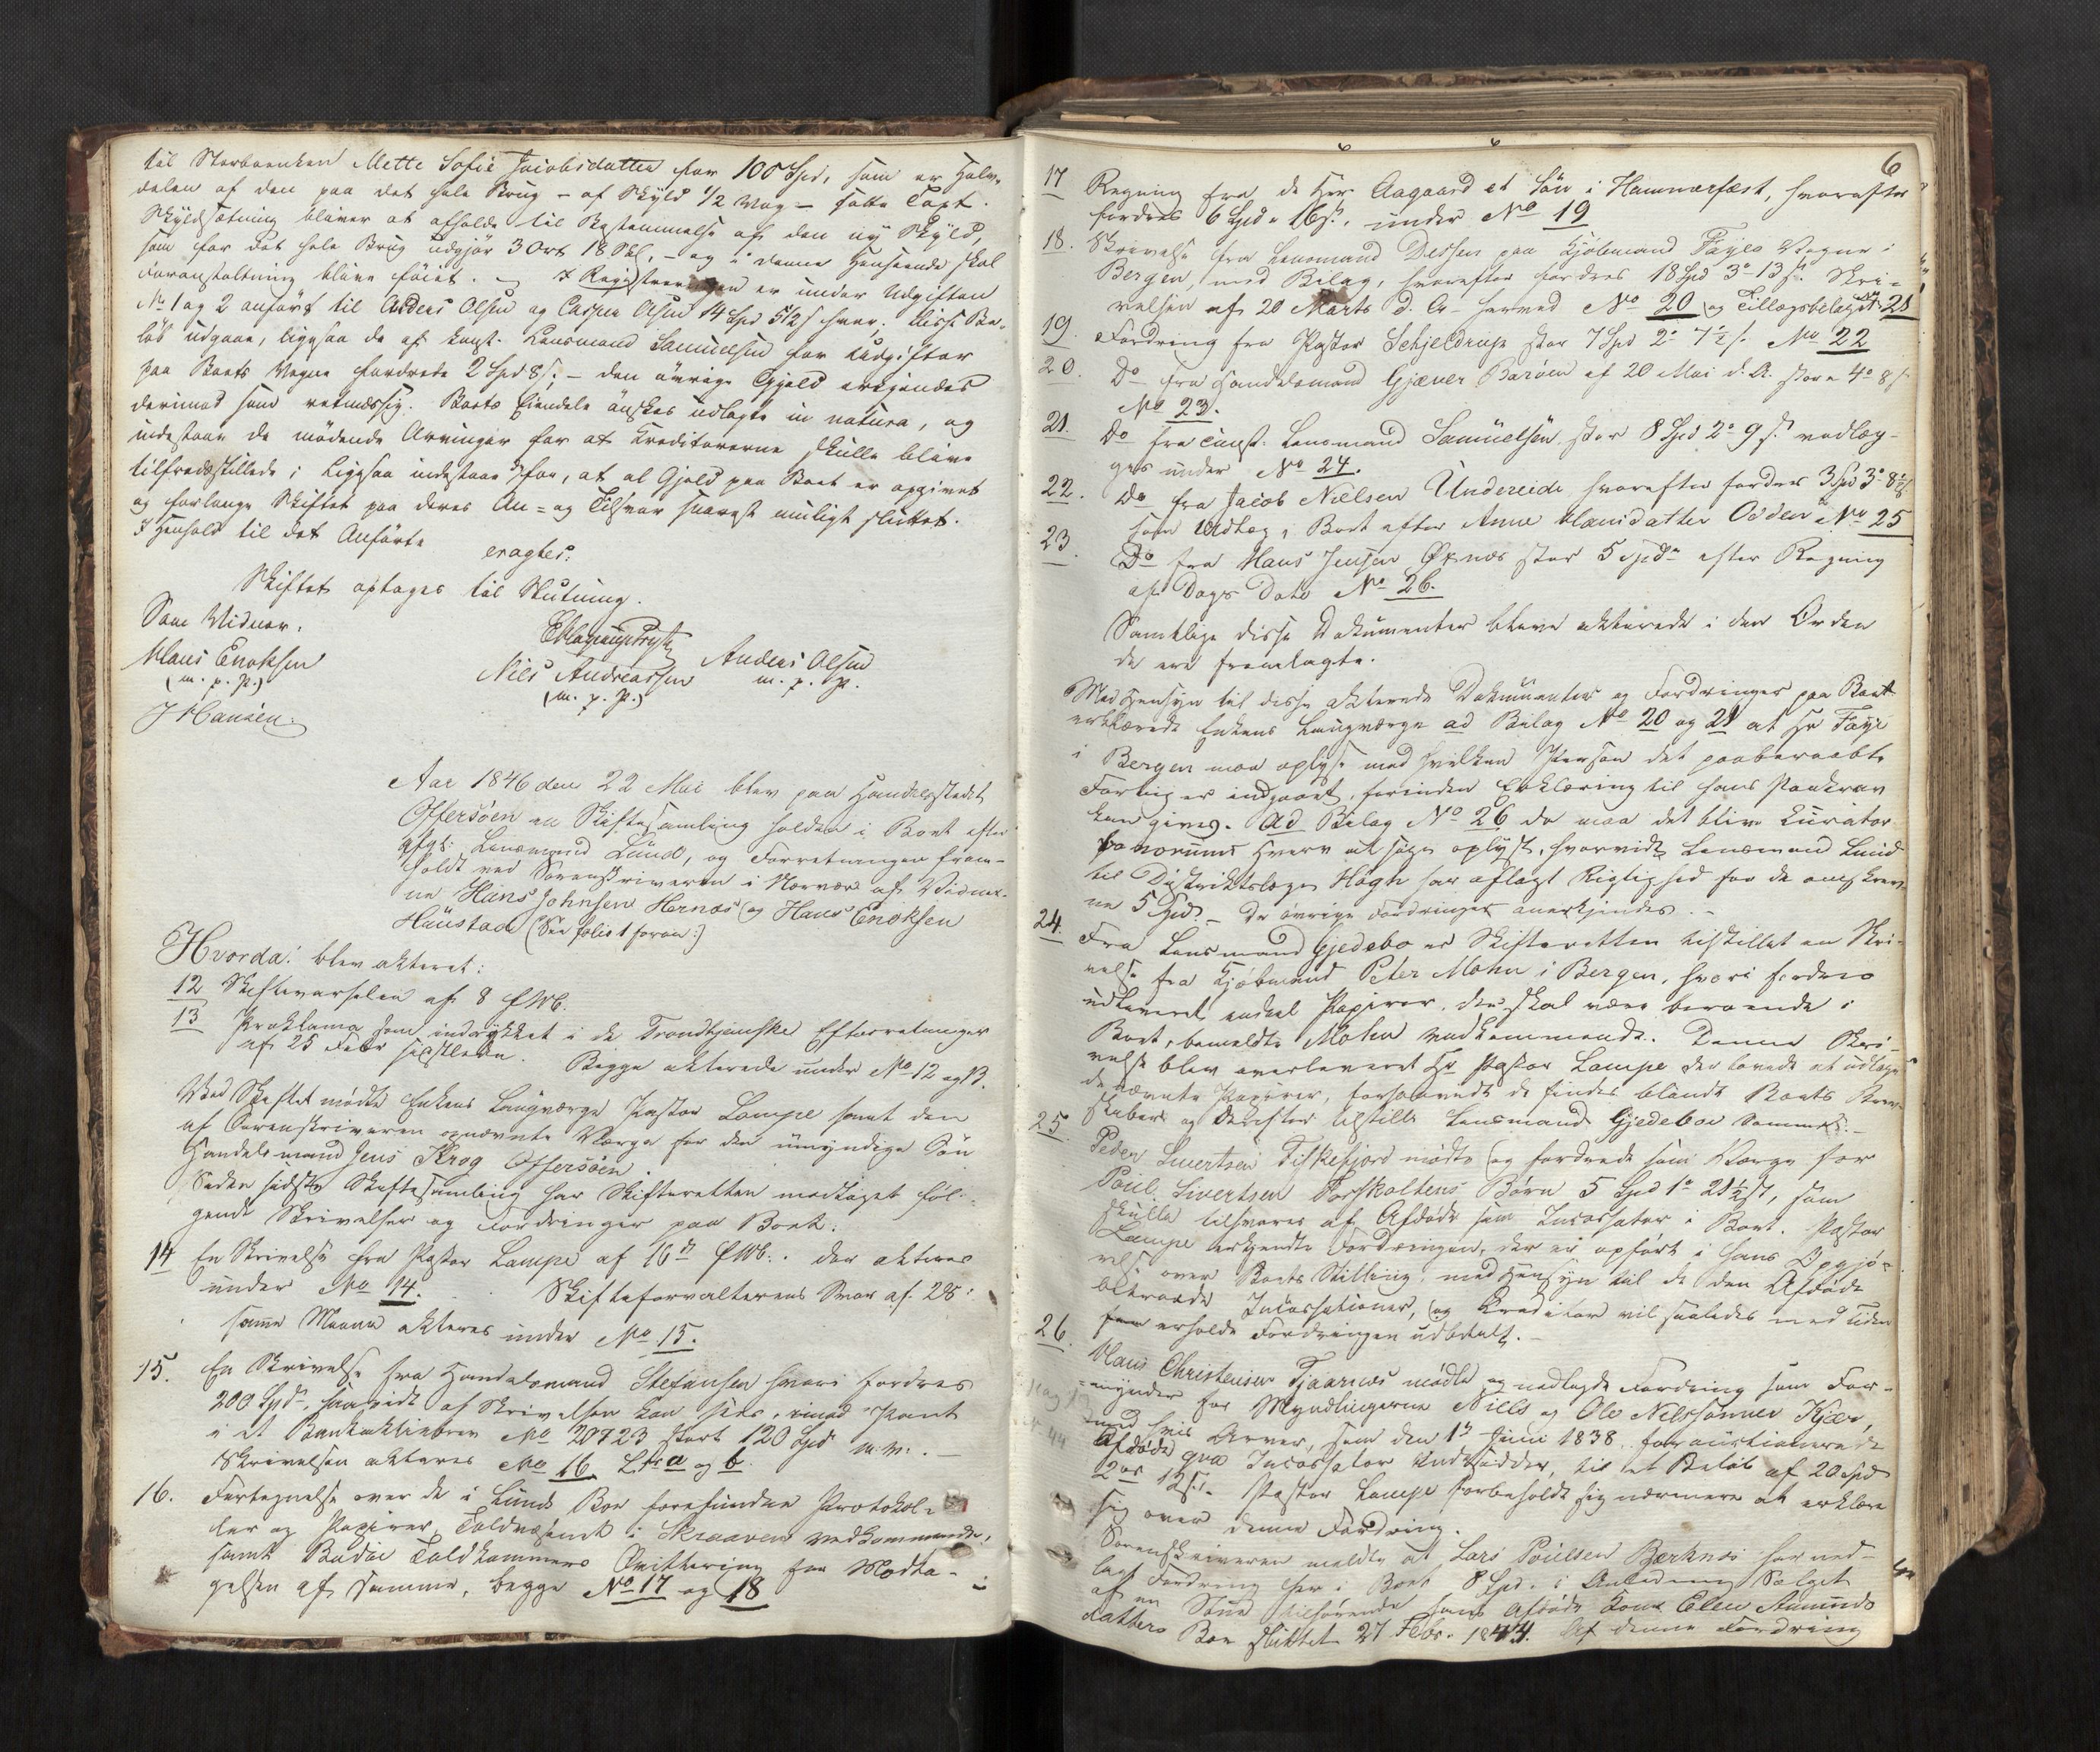 til Sterboenken Mette Sofie Jacobsdatter for 100 Spd, som er Halv-
delen af den paa det hele Brug - af Skyld 1/2 Vog - satte Taxt.
Skyldsætning bliver at afholde til Bestemmelse af den ny Skyld,
som for det hele Brug udgjør 3 Ort 18 Skl, - og i denne Henseende skal
Foranstaltning blive føiet. - I Registreringen er under Udgiften
No 1 og 2 anført til Anders Olsen og Casper Olsen 14 Spd 5 1/2 s hver; disse Be-
løb udgaae, ligesaa de af const. Lensmand Samuelsen for Udgifter
paa Boets Vegne fordrede 2 Spd 8 s. - den øvrige Gjæld erkjendes
derimod som retmæssig. Boets Eiendele ønskes udlagte in natura, og
indestaae de mødende Arvinger for at Kreditorerne skulle blive
tilfredsstillede; ligesaa indestaae de for, at al Gjeld paa Boet er opgivet
og forlange Skiftet paa deres An- og Tilsvar snarest muligt sluttet.
I Henhold til det Anførte
eragtes:
Skiftet optages til Slutning.
Som Vidner.
Klaus Enoksen Niels Andreassen Anders Olsen
(m. p. P.) (m. p. P.) m. p. P.
J Hansen
Aar 1846 den 22 Mai blev paa Handelsstedet
Offersøen en Skiftesamling holden i Boet efter
afg: Lensmand Lund, og Forretningen frem-
holdt ved Sorenskriveren i Nærvær af Vidner-
ne Hans Johnsen Hernæs og Hans Enoksen
Haustad (See folio 1 foran:)
Hvorda: blev akteret:
12 Skiftevarselen af 8 f. M.
13 Proklama som indrykket i de Trondhjemske Efterretninger
af 25 Febr sidstleden. Begge akterede under No 12 og 13.
Ved Skiftet mødte Enkens Laugværge Pastor Lampe samt den
af Sorenskriveren opnævnte Værge for den umyndige Søn
Handelsmand Jens Krog Offersøen.
Siden sidste Skiftesamling har Skifteretten modtaget føl-
gende Skrivelser og Fordringer paa Boet:
14 En Skrivelse fra Pastor Lampe af 16de f. M. der akteres
under No 14. Skifteforvalterens Svar af 28
samme Maaned akteres under No 15.
15. En Skrivelse fra Handelsmand Stefansen hvori fordres
200 Spd, saavidt af Skrivelsen kan sees, imod Pant
i et Bankaktiebrev No 20723 stort 120 Spd m: v: -
Skrivelsen akteres No 16 Ltr a og b.
16. Fortegnelse over de i Lunds Boe forefundne Protokol-
ler og Papirer Toldvæsenet i Skraaven vedkommende,
samt Bodøe Toldkammers Qvittering for Modta-
gelsen af samme, begge No 17 og 18
6
17 Regning fra de Hrr Aagaard et Søn i Hammerfest, hvorefter
fordres 6 Spd " 16 s. under No 19
18. Skrivelse fra Lensmand Dessen paa Kjøbmand Fayes Vegne i
Bergen, med Bilag, hvorefter fordres 18 Spd 3 o 13 s. Skri-
velsen af 20 Marts d. A. - herved No 20 og Tillægsbelagt No 21
19. Fordring fra Pastor Schjeldrup stor 7 Spd 2 o 7 1/2 s. No 22
20. Do fra Handelsmand Gjæver Barøen af 20 Mai d. A. stor " 4 o 8 s
No 23.
21. Do fra const. Lensmand Samuelsen stor 8 Spd 2 o 9 s. vedlæg-
ges under No 24.
22. Do fra Jacob Nielsen Undereide hvorefter fordres 3 Spd 3 o 8 1/2 s
som Udlæg i Boet efter Anne Hansdatter Odden No 25
23. Do fra Hans Jensen Øxnæs stor 5 Spd " efter Regning
af Dags Dato No 26.
Samtlige disse Dokumenter bleve akterede i den Orden
de ere fremlagte.
Med Hensyn til disse akterede Dokumenter og Fordringer paa Boet
erklærede Enkens Laugværge ad Bilag No 20 og 21 at Hr Faye
i Bergen maa oplyse med hvilken Person det paaberaabte
Forlig er indgaaet, forinden Erklæring til hans Paakrav
kan gives. Ad Bilag No 26 da maa det blive Curator
bonorums Hverv at søge oplyst, hvorvidt Lensmand Lund
til Distriktslæge Høgh har aflagt Rigtighed for de omskrev-
ne 5 Spd. - De øvrige Fordringer anerkjendes. -
24. Fra Lensmand Gjedebo er Skifteretten tilstillet en Skri-
velse fra Kjøbmand Peter Mohn i Bergen, hvori fordres
udleveret endeel Papirer, der skal være beroende i
Boet, bemeldte Mohn vedkommende. Denne Skri-
velse blev overleveret Hr Pastor Lampe der lovede at udsøge
de nævnte Papirer, forsaavidt de findes blandt Boets Brev-
skaber og derefter tilstille Lensmand Gjedeboe Samme. -
25. Peder Sivertsen Fiskefjord mødte og fordrede som Værge for
Poul Sivertsen Torskoltens Børn 5 Spd 1 o 21 1/2 s, som
skulle tilsvares af Afdøde som Incassator i Boet. Pastor
Lampe erkjendte Fordringen, der er opført i hans Opgjø-
relse over Boets Stilling, med Hensyn til de den Afdøde
betroede Incassationer, og Kreditor vil saaledes med Tiden
erholde Fordringen udbetalt. -
26. Klaus Christensen Tjaarnes mødte og nedlagde Fordring som For-
mynder for Myndlingerne Niels og Ole Nelssønner Kjær,
med hvis Arver, som den 1ste Juni 1838 forauctionerede
Afdøde qva Incassator Undseidder, til et Beløb af 20 Spd
2 ort 12 s. - Pastor Lampe forbeholdt sig nærmere at erklære
sig over denne Fordring.
Sorenskriveren meldte at Lars Poulsen Bærknæs har ned-
lagt Fordring her i Boet 8 Spd. i Anledning Salget
af en Stue tilhørende hans afdøde Kone Elen Amunds
datters Boe sluttet 27 Febr. 1844. Af denne Fordring